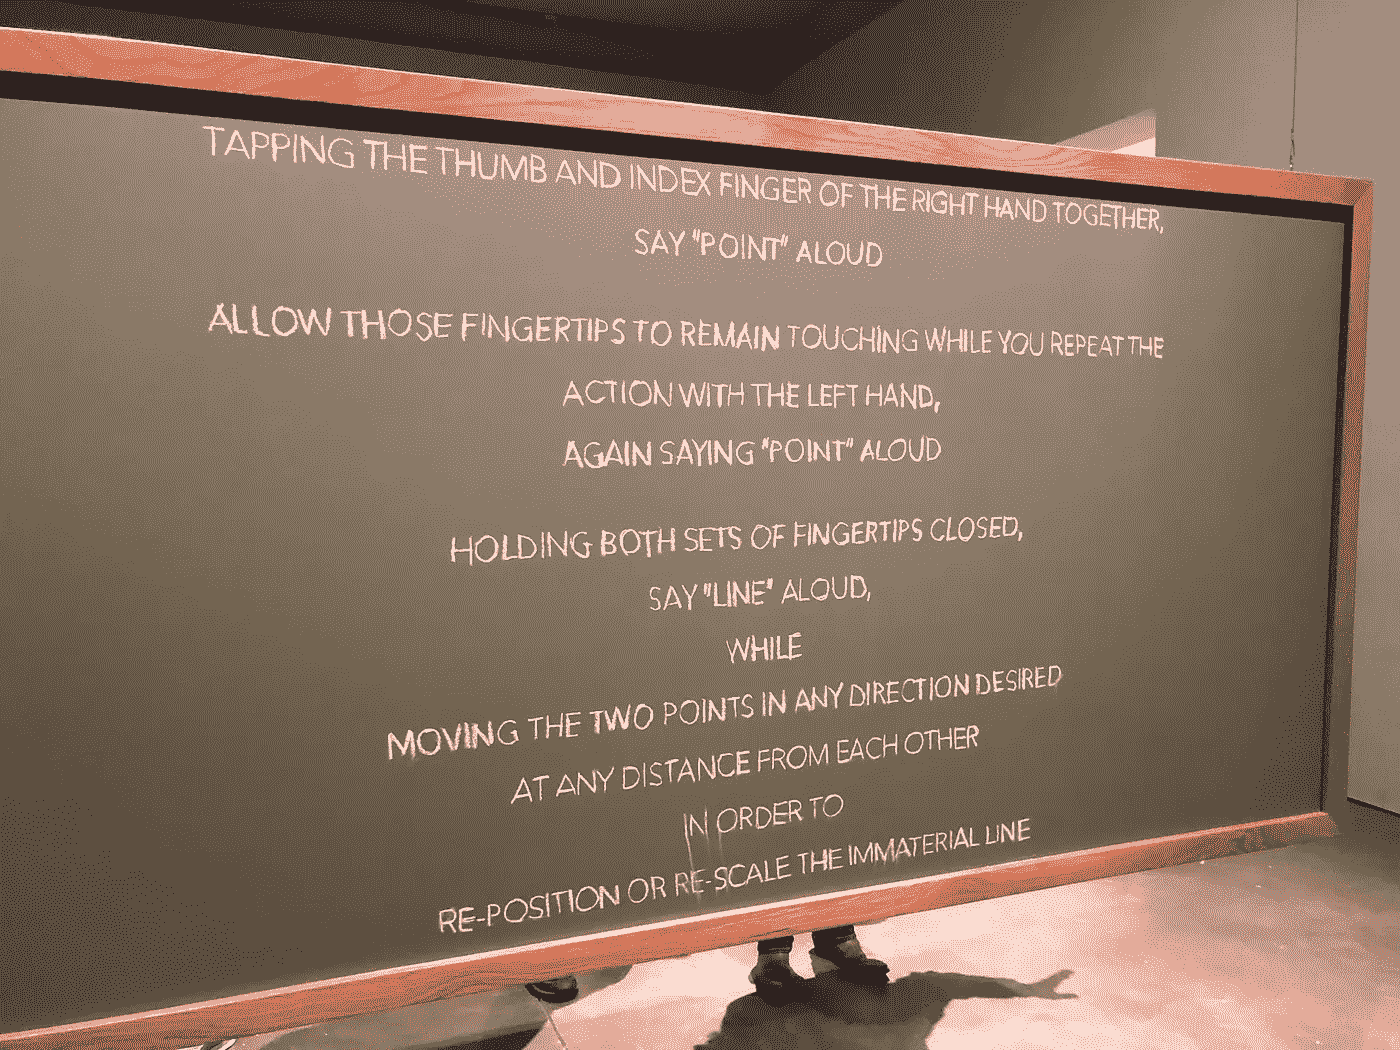 TAPPING THE THUMB AND INDEX FINGER OF THE RIGHT HAND TOGETHER,
SAY "POINT" ALOUD
ALLOW THOSE FINGERTIPS TO REMAIN TOUCHING WHILE YOU REPEAT THE
ACTION WITH THE LEFT HAND,
AGAIN SAYING "POINT" ALOUD
HOLDING BOTH SETS OF FINGERTIPS CLOSED,
SAY "LINE" ALOUD,
WHILE
MOVING THE TWO POINTS IN ANY DIRECTION DESIRED
AT ANY DISTANCE FROM EACH OTHER
IN ORDER TO
RE-POSITION OR RE-SCALE THE IMMATERIAL LINE